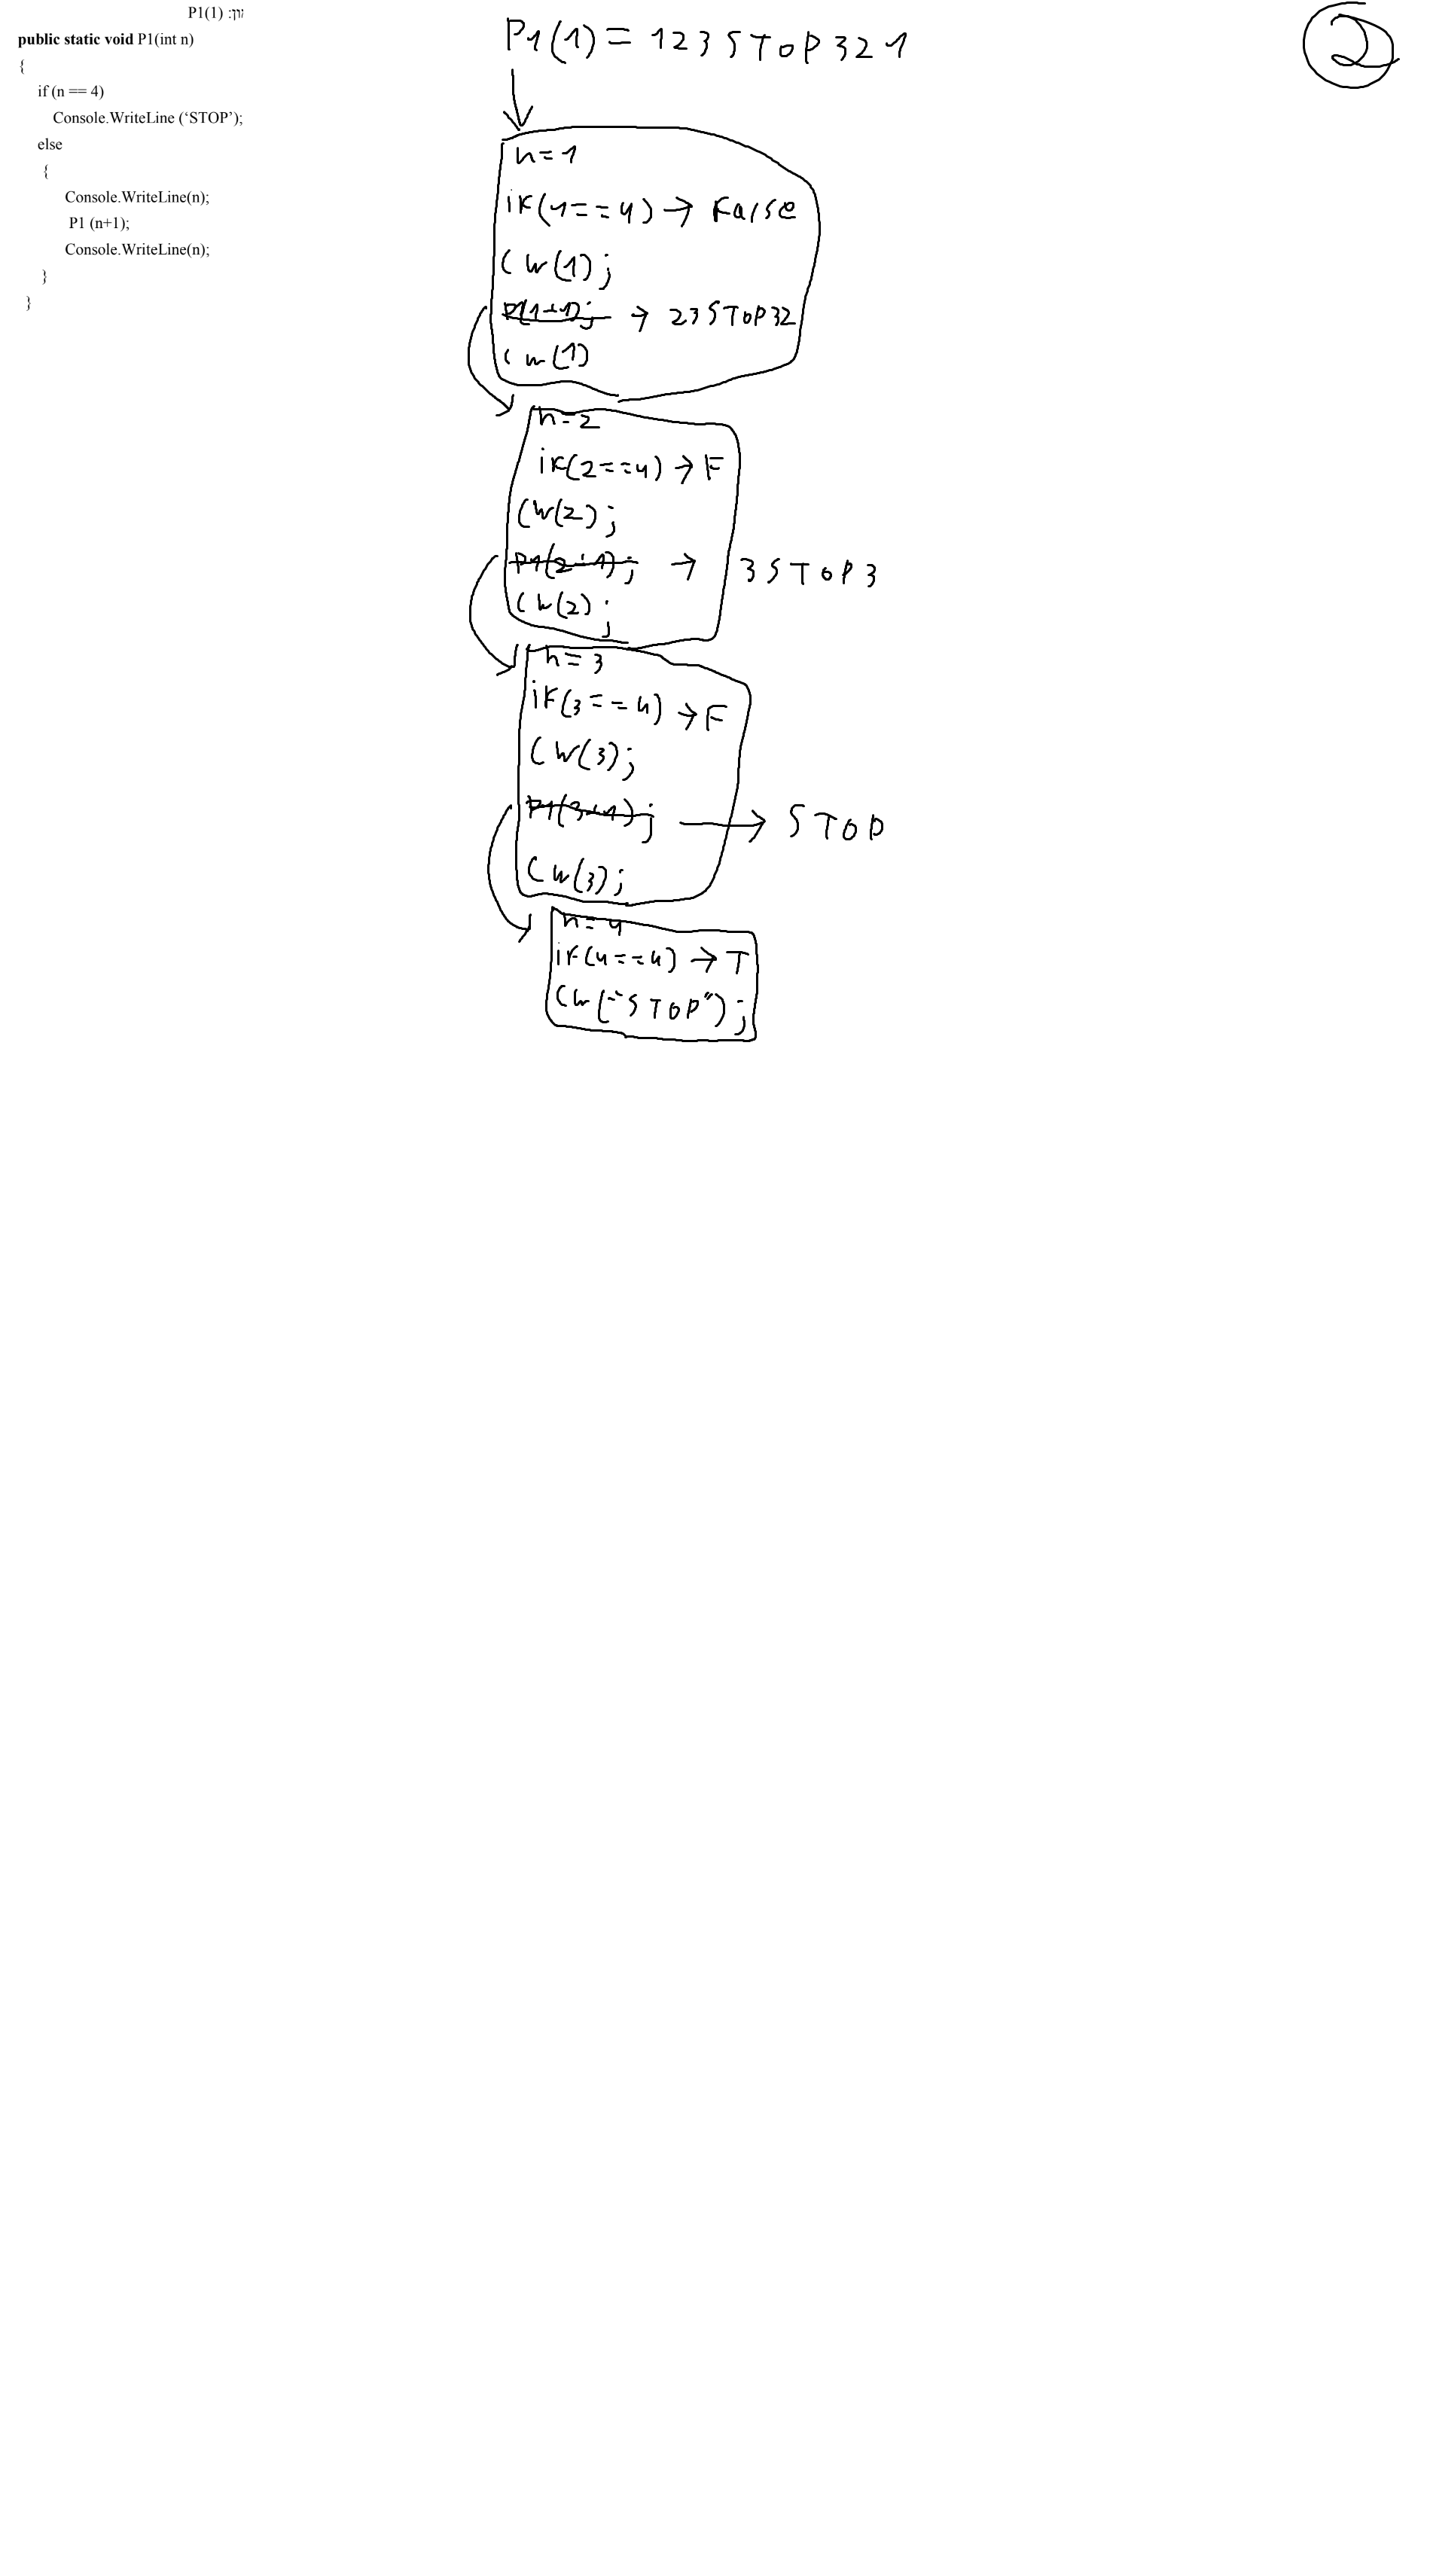 P1(1) :
public static void P1(int n)
{
if (n == 4)
Console.WriteLine (‘STOP’);
else
{
Console.WriteLine(n);
P1 (n+1);
Console.WriteLine(n);
}
}
P1(1) = 123STOP321
2
n=1
if(1==4) → False
CW(1);
P1(1+1); → 23STOP32
CW(1)
n=2
if(2==4) → F
CW(2);
P1(2+1); → 3STOP3
CW(2);
n=3
if(3==4) → F
CW(3);
P1(3+1); → STOP
CW(3);
n=4
if(4==4) → T
CW("STOP");